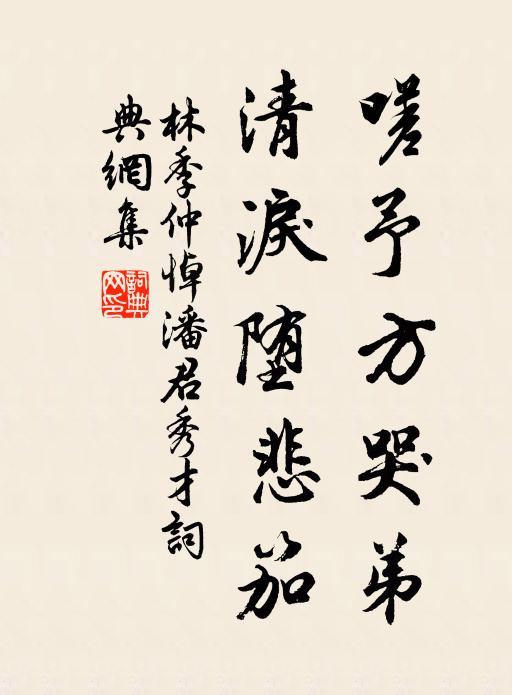 嗟予方哭弟
清淚堕悲笳
林季仲悼潘君秀才詞
典網集
詞典網印